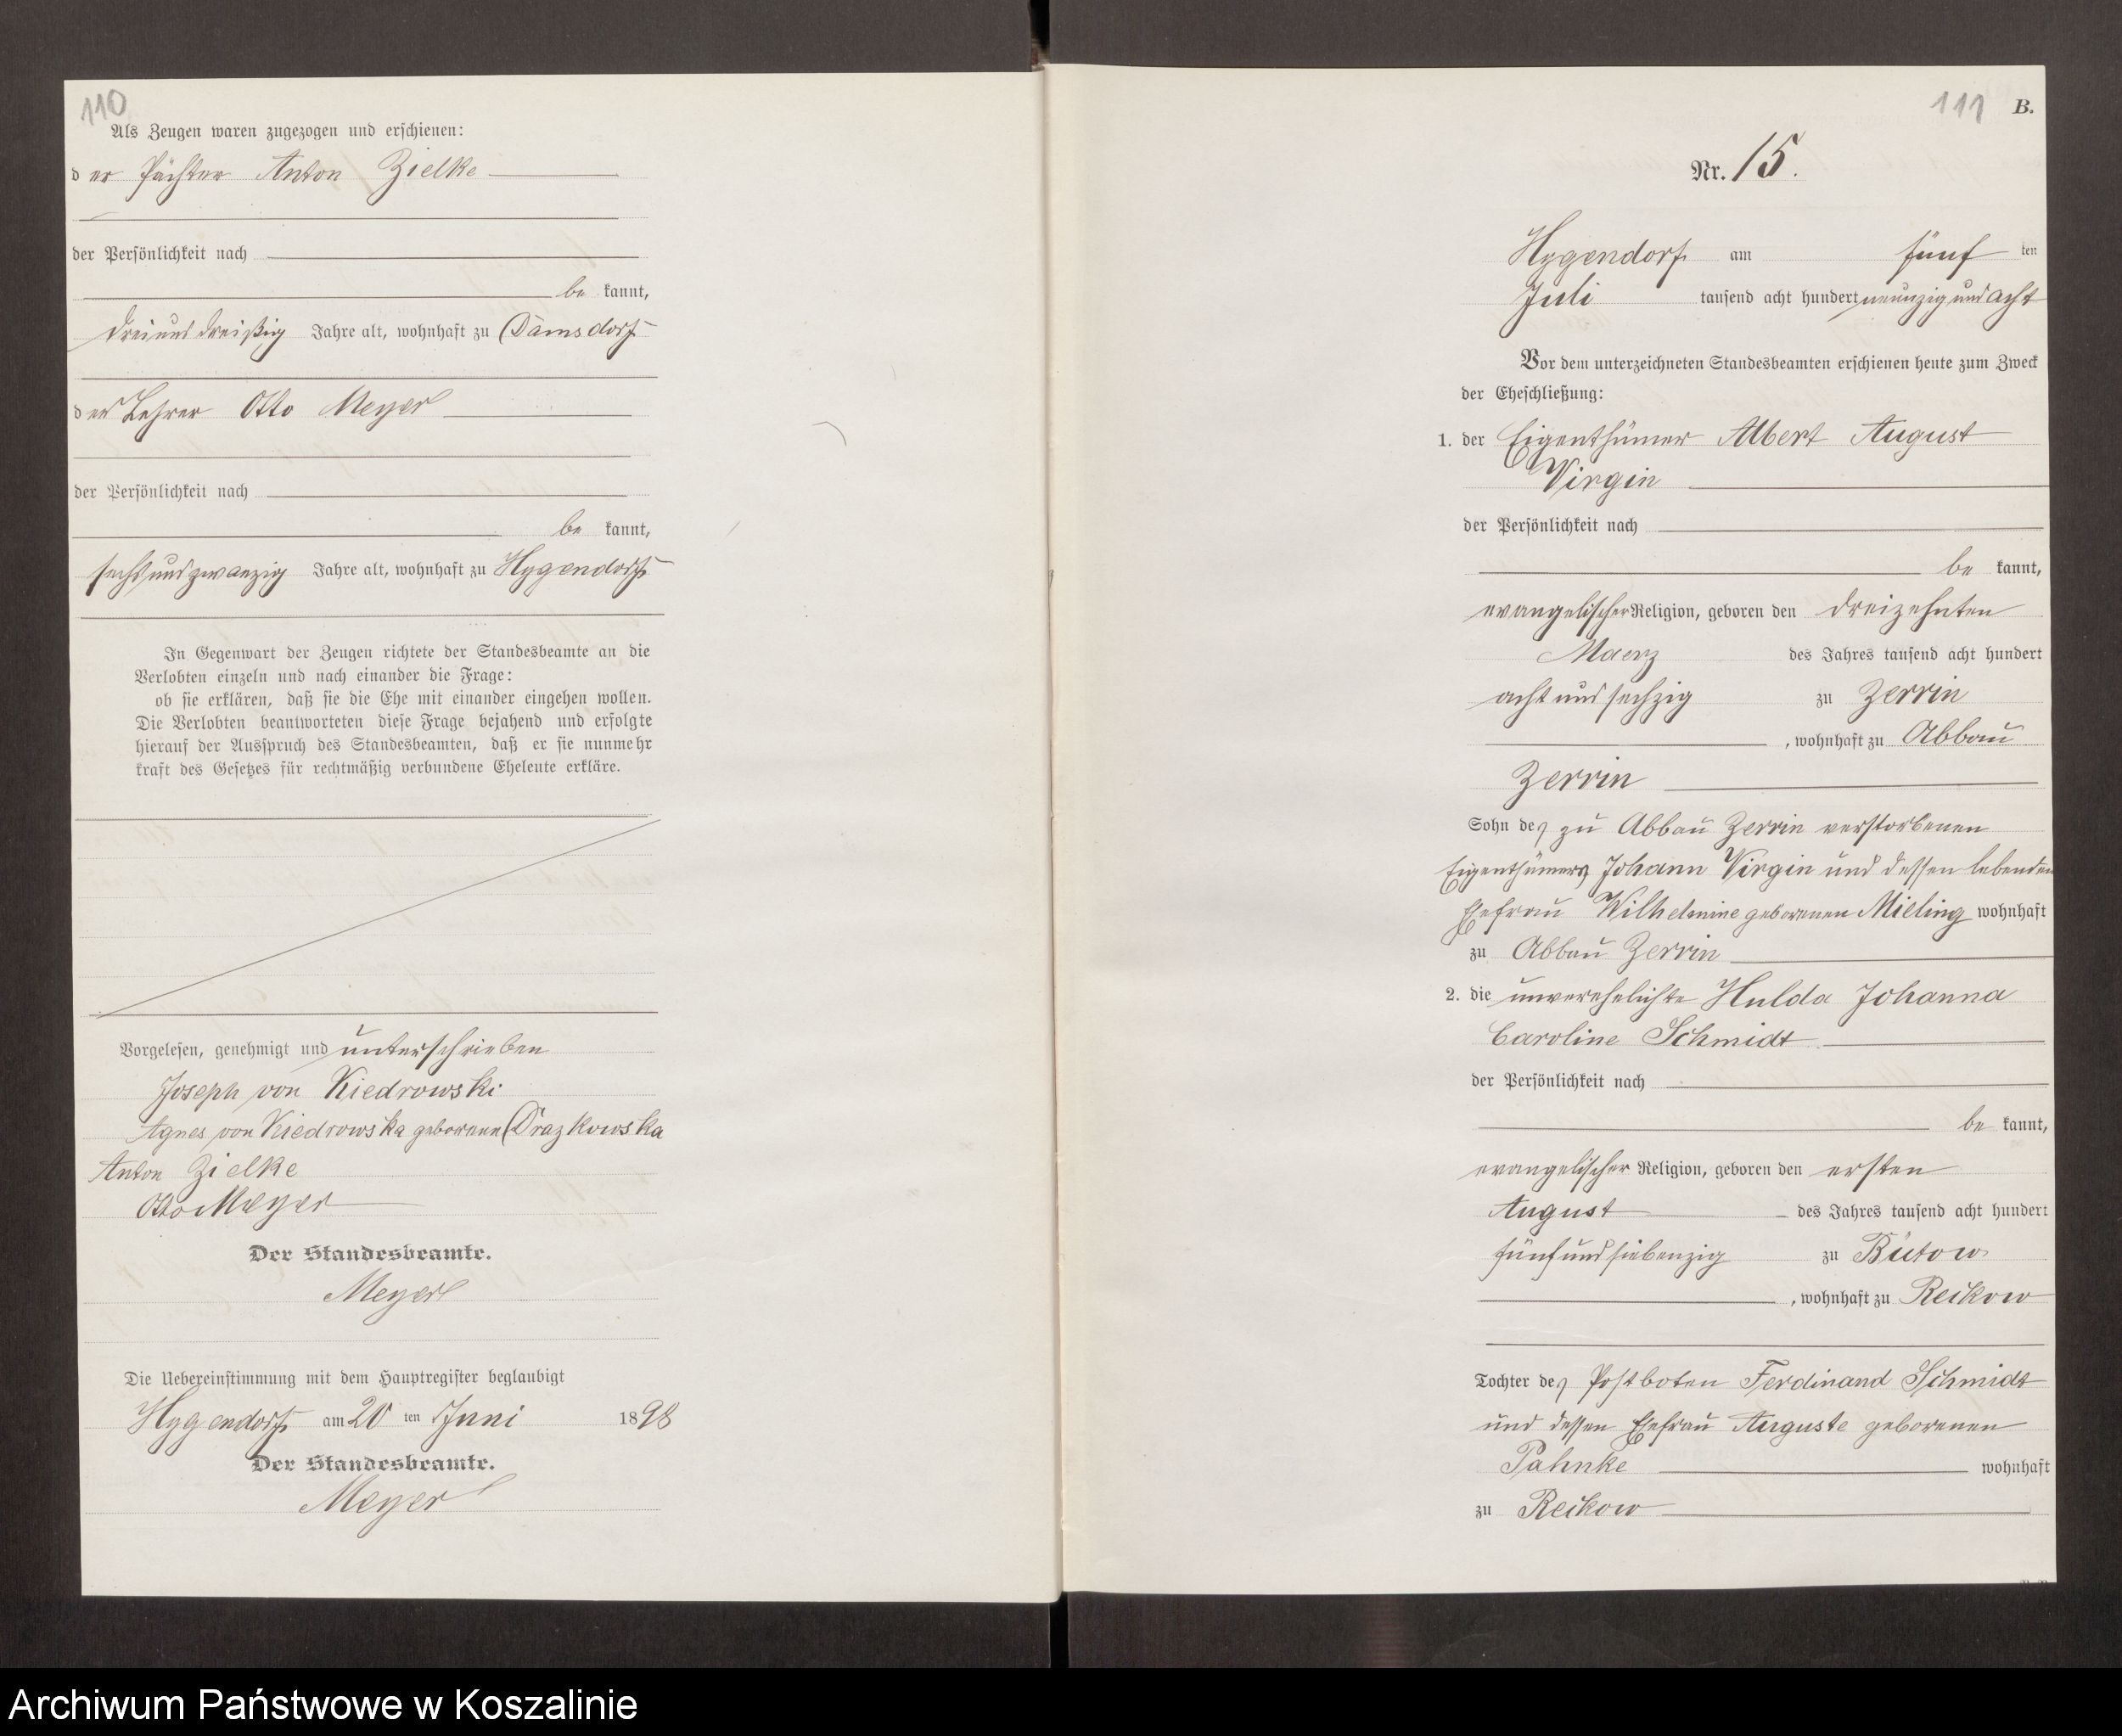 110
Als Zeugen waren zugezogen und erschienen:
der Pächter Anton Zielke
der Persönlichkeit nach
be kannt,
dreiunddreißig Jahre alt, wohnhaft zu Damsdorf
der Lehrer Otto Meyer
der Persönlichkeit nach
be kannt,
sechsundzwanzig Jahre alt, wohnhaft zu Hygendorf
In Gegenwart der Zeugen richtete der Standesbeamte an die
Verlobten einzeln und nach einander die Frage:
ob sie erklären, daß sie die Ehe mit einander eingehen wollen.
Die Verlobten beantworteten diese Frage bejahend und erfolgte
hierauf der Ausspruch des Standesbeamten, daß er sie nunmehr
kraft des Gesetzes für rechtmäßig verbundene Eheleute erkläre.
Vorgelesen, genehmigt und unterschrieben
Joseph von Kiedrowski
Agnes von Kiedrowska geborene Drazkowska
Anton Zielke
Otto Meyer
Der Standesbeamte.
Meyer
Die Uebereinstimmung mit dem Hauptregister beglaubigt
Hygendorf am 20 ten Juni 1898
Der Standesbeamte.
Meyer
111 B.
Nr. 15.
Hygendorf am fünf ten
Juli tausend acht hundert neunzig und acht
Vor dem unterzeichneten Standesbeamten erschienen heute zum Zweck
der Eheschließung:
1. der Eigenthümer Albert August
Virgin
der Persönlichkeit nach
be kannt,
evangelischer Religion, geboren den dreizehnten
Maerz des Jahres tausend acht hundert
acht und sechzig zu Zerrin
, wohnhaft zu Abbau
Zerrin
Sohn des zu Abbau Zerrin verstorbenen
Eigenthümers Johann Virgin und dessen lebenden
Ehefrau Wilhelmine geborenen Mieling wohnhaft
zu Abbau Zerrin
2. die unverehelichte Hulda Johanna
Caroline Schmidt
der Persönlichkeit nach
be kannt,
evangelischer Religion, geboren den ersten
August des Jahres tausend acht hundert
fünf und siebenzig zu Bütow
, wohnhaft zu Reikow
Tochter des Postboten Ferdinand Schmidt
und dessen Ehefrau Auguste geborenen
Pahnke wohnhaft
zu Reikow
Archiwum Państwowe w Koszalinie